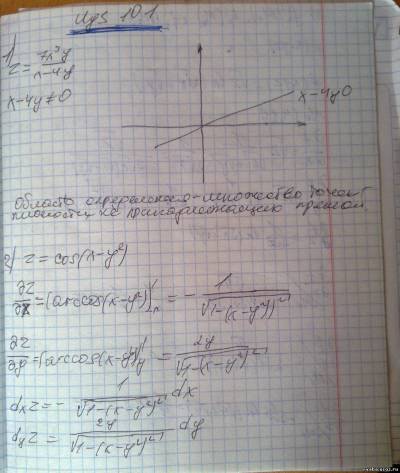 ИДЗ 10.1.
1)
z = 7x³y / x-4y
x-4y≠0
x-4y0
Область определения - множество точек
плоскости, не принадлежащих прямой
2) z = cos(x-y²)
∂z/∂x = (arccos(x-y²))'x = - 1/√(1-(x-y²)²)
∂z/∂y = (arccos(x-y²))'y = 2y/√(1-(x-y²)²)
dxz = - 1/√(1-(x-y²)²) dx
dyz = 2y/√(1-(x-y²)²) dy